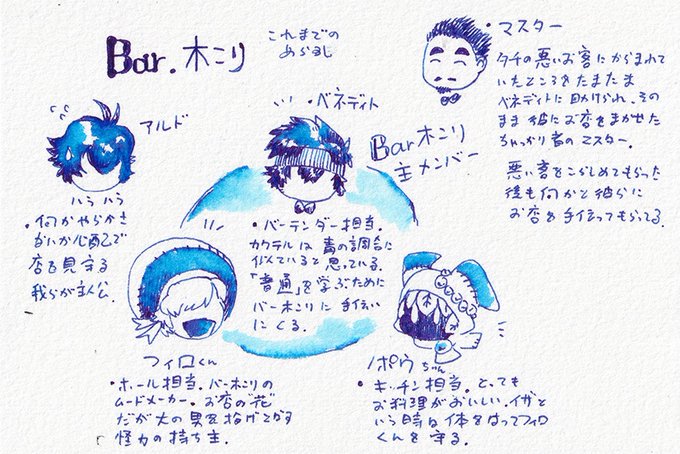 Bar. 木こり
これまでの
あらすじ
・マスター
タチの悪いお客にからまれて
いたところをたまたま
ベネディトに助けられ、その
まま彼にお店をまかせた
ちゃっかり者のマスター.
悪い客をこらしめてもらった
後も何かと彼らに
お店を手伝ってもらってる.
アルド
ハラハラ
・何かやらかさ
ないか心配で
店を見守る
我らが主人公.
・ベネディト
Bar木こり
主メンバー
・バーテンダー担当.
カクテルは毒の調合に
似ていると思っている.
「普通」を学ぶために
バー木こりに手伝い
にくる.
フィロくん
・ホール担当. バー木こりの
ムードメーカー. お店の"花"
だが大の男を投げとばす
怪力の持ち主.
ノポウちゃん
・キッチン担当. とっても
お料理がおいしい. イザと
いう時は体をはってフィロ
くんを守る.